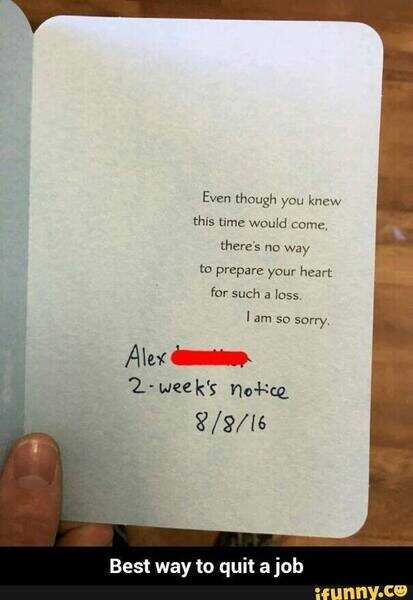 Even though you knew
this time would come,
there's no way
to prepare your heart
for such a loss.
I am so sorry.
Alex
2-week's notice
8/8/16
Best way to quit a job
ifunny.co